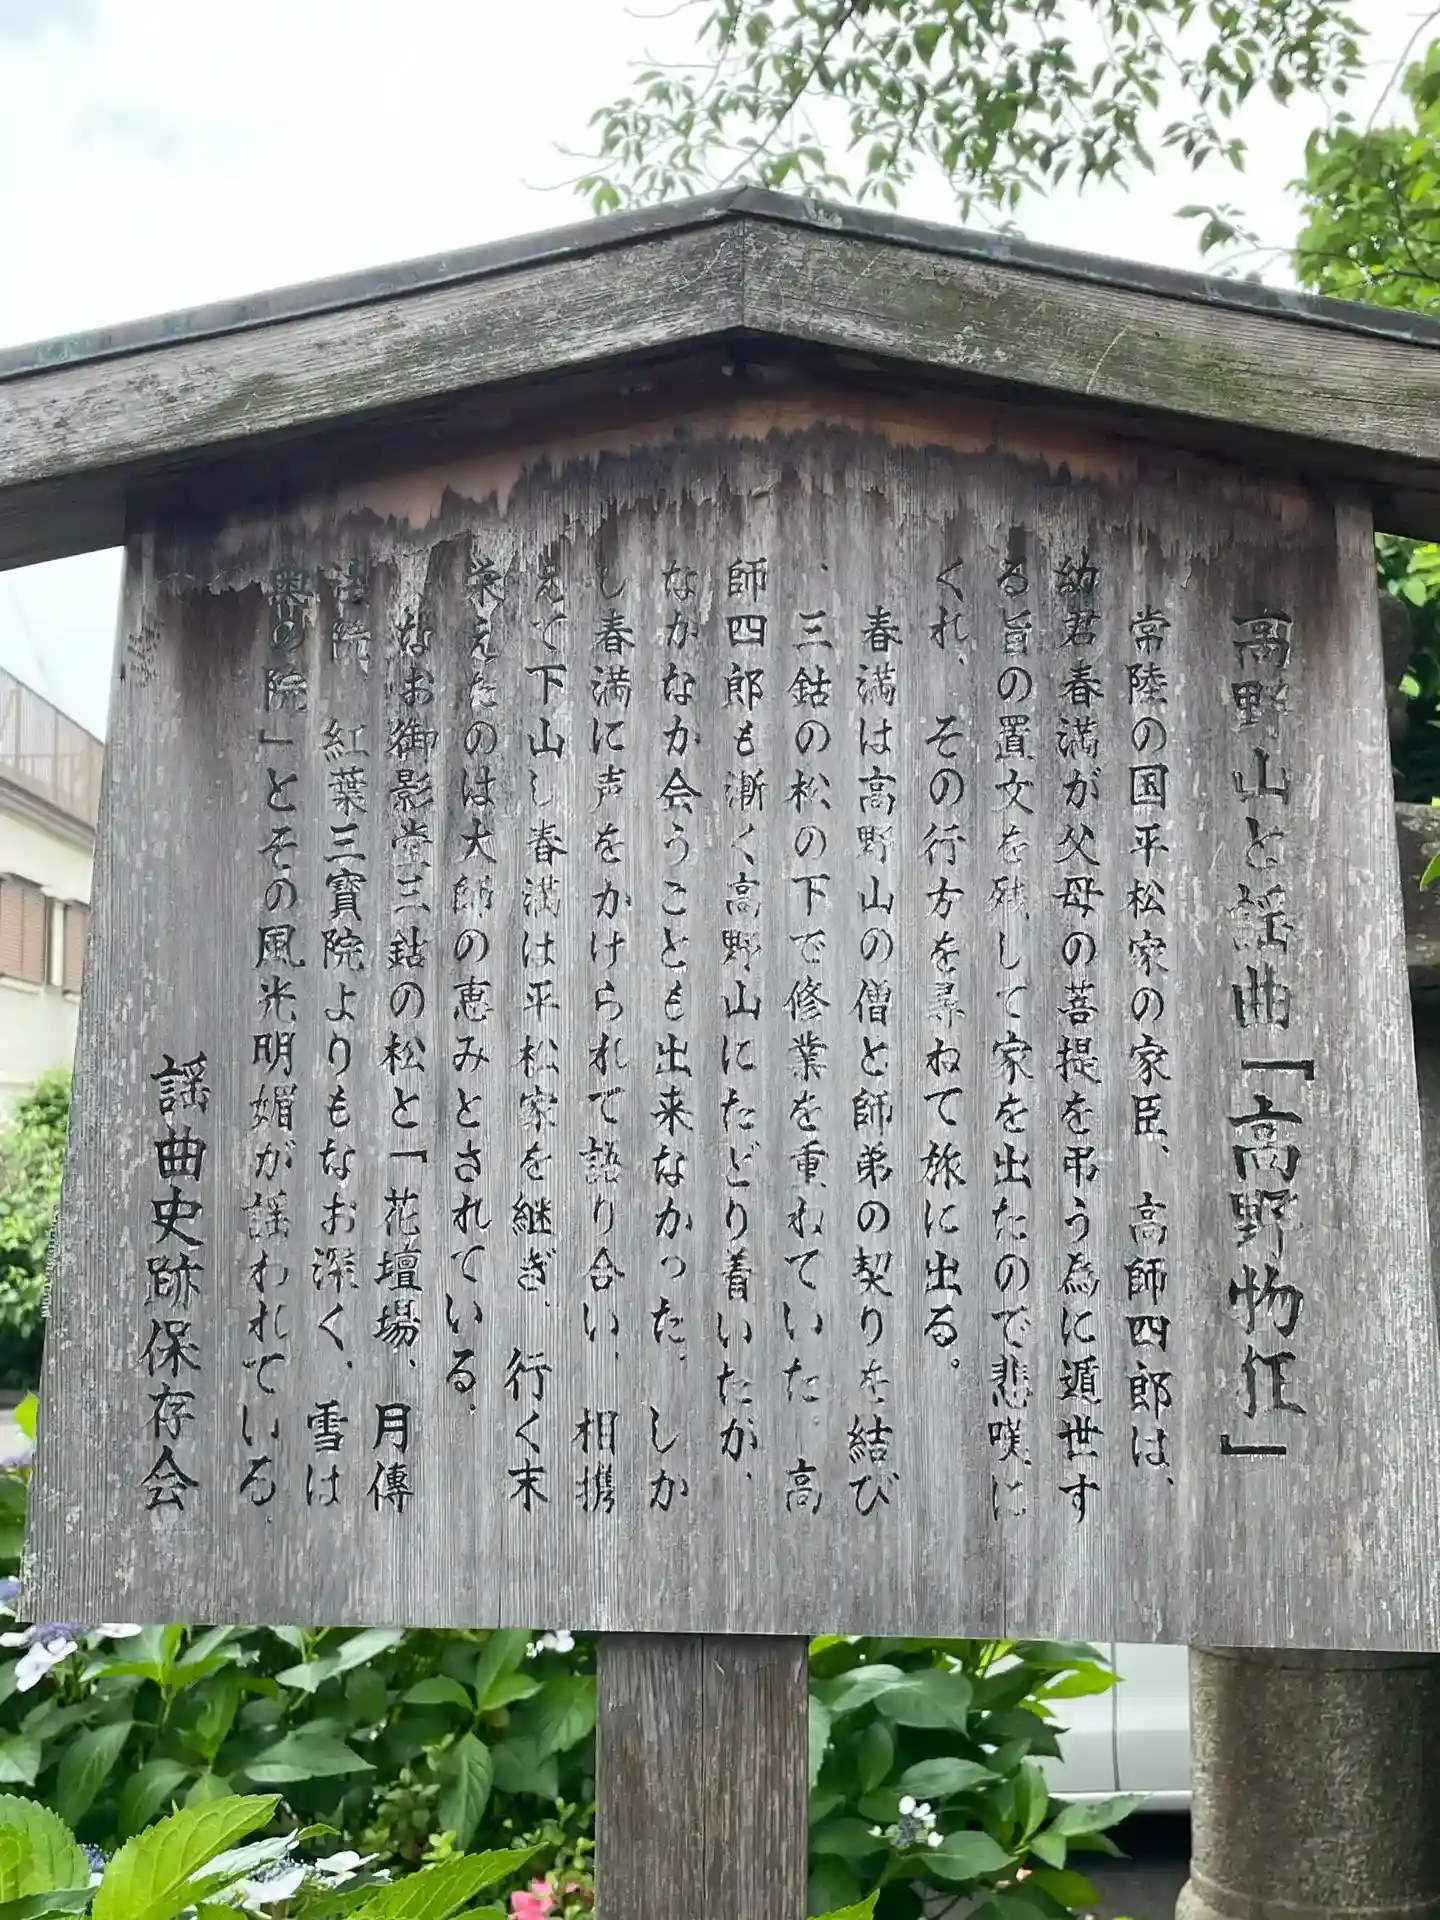 高野山と謡曲「高野物狂」
常陸の国平松家の家臣、高師四郎は、
幼君春満が父母の菩提を弔う為に遁世す
る旨の置文を残して家を出たので悲嘆に
くれ、その行方を尋ねて旅に出る。
春満は高野山の僧と師弟の契りを結び
、三鈷の松の下で修業を重ねていた。高
師四郎も漸く高野山にたどり着いたが、
なかなか会うことも出来なかった。しか
し春満に声をかけられて語り合い、相携
えて下山し春満は平松家を継ぎ、行く末
栄えたのは大師の恵みとされている。
なお御影堂三鈷の松と「花壇場、月傳
法院、紅葉三寳院よりもなお深く、雪は
奥の院」とその風光明媚が謡われている。
謡曲史跡保存会